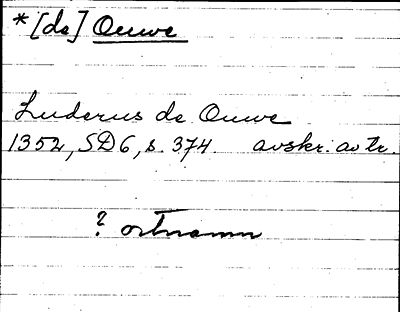 *[de] Ouwe
Luderus de Ouwe
1352, SD6, s. 374. avskr. av tr.
? ortnamn